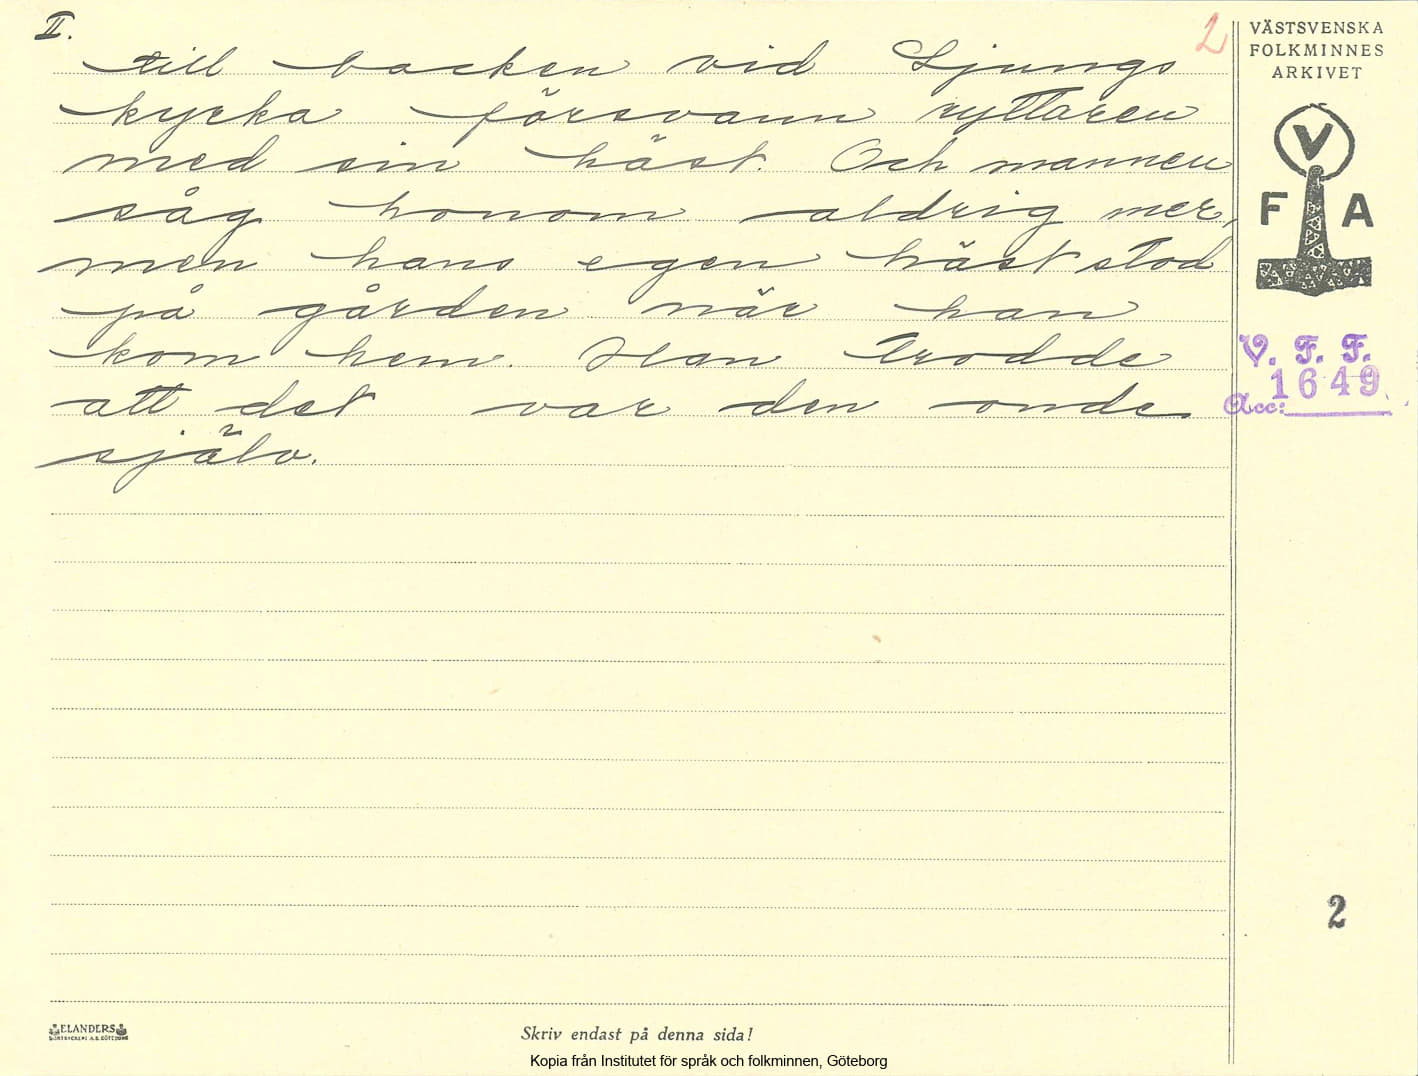 II.
2
till backen vid Ljungs
kyrka försvann ryttaren
med sin häst. Och mannen
såg honom aldrig mer,
men hans egen häst stod
på gården när han
kom hem. Han trodde
att det var den onde
själv.
VÄSTSVENSKA
FOLKMINNES
ARKIVET
V
F A
V. F. F.
1649
Acc:
2
ELANDERS
Skriv endast på denna sida!
Kopia från Institutet för språk och folkminnen, Göteborg